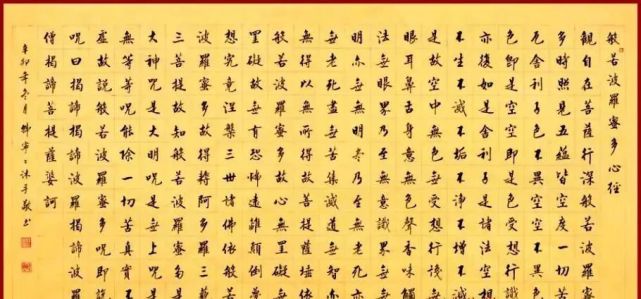 般若波羅蜜多心経
觀自在菩薩行深般若波羅蜜
多時照見五蘊皆空度一切苦
厄舍利子色不異空空不異色
色即是空空即是色受想行識
亦復如是舍利子是諸法空相
不生不滅不垢不淨不增不減
是故空中無色無受想行識無
眼耳鼻舌身意無色聲香味觸
法無眼界乃至無意識界無無
明亦無無明盡乃至無老死亦
無老死盡無苦集滅道無智亦
無得以無所得故菩提薩埵依
般若波羅蜜多故心無罣礙無
罣礙故無有恐怖遠離顛倒夢
想究竟涅槃三世諸佛依般若
波羅蜜多故得阿耨多羅三藐
三菩提故知般若波羅蜜多是
大神咒是大明咒是無上咒是
無等等咒能除一切苦真實不
虛故說般若波羅蜜多咒即說
咒曰揭諦揭諦波羅揭諦波羅
僧揭諦菩提薩婆訶
辛卯年冬月 沐手敬書